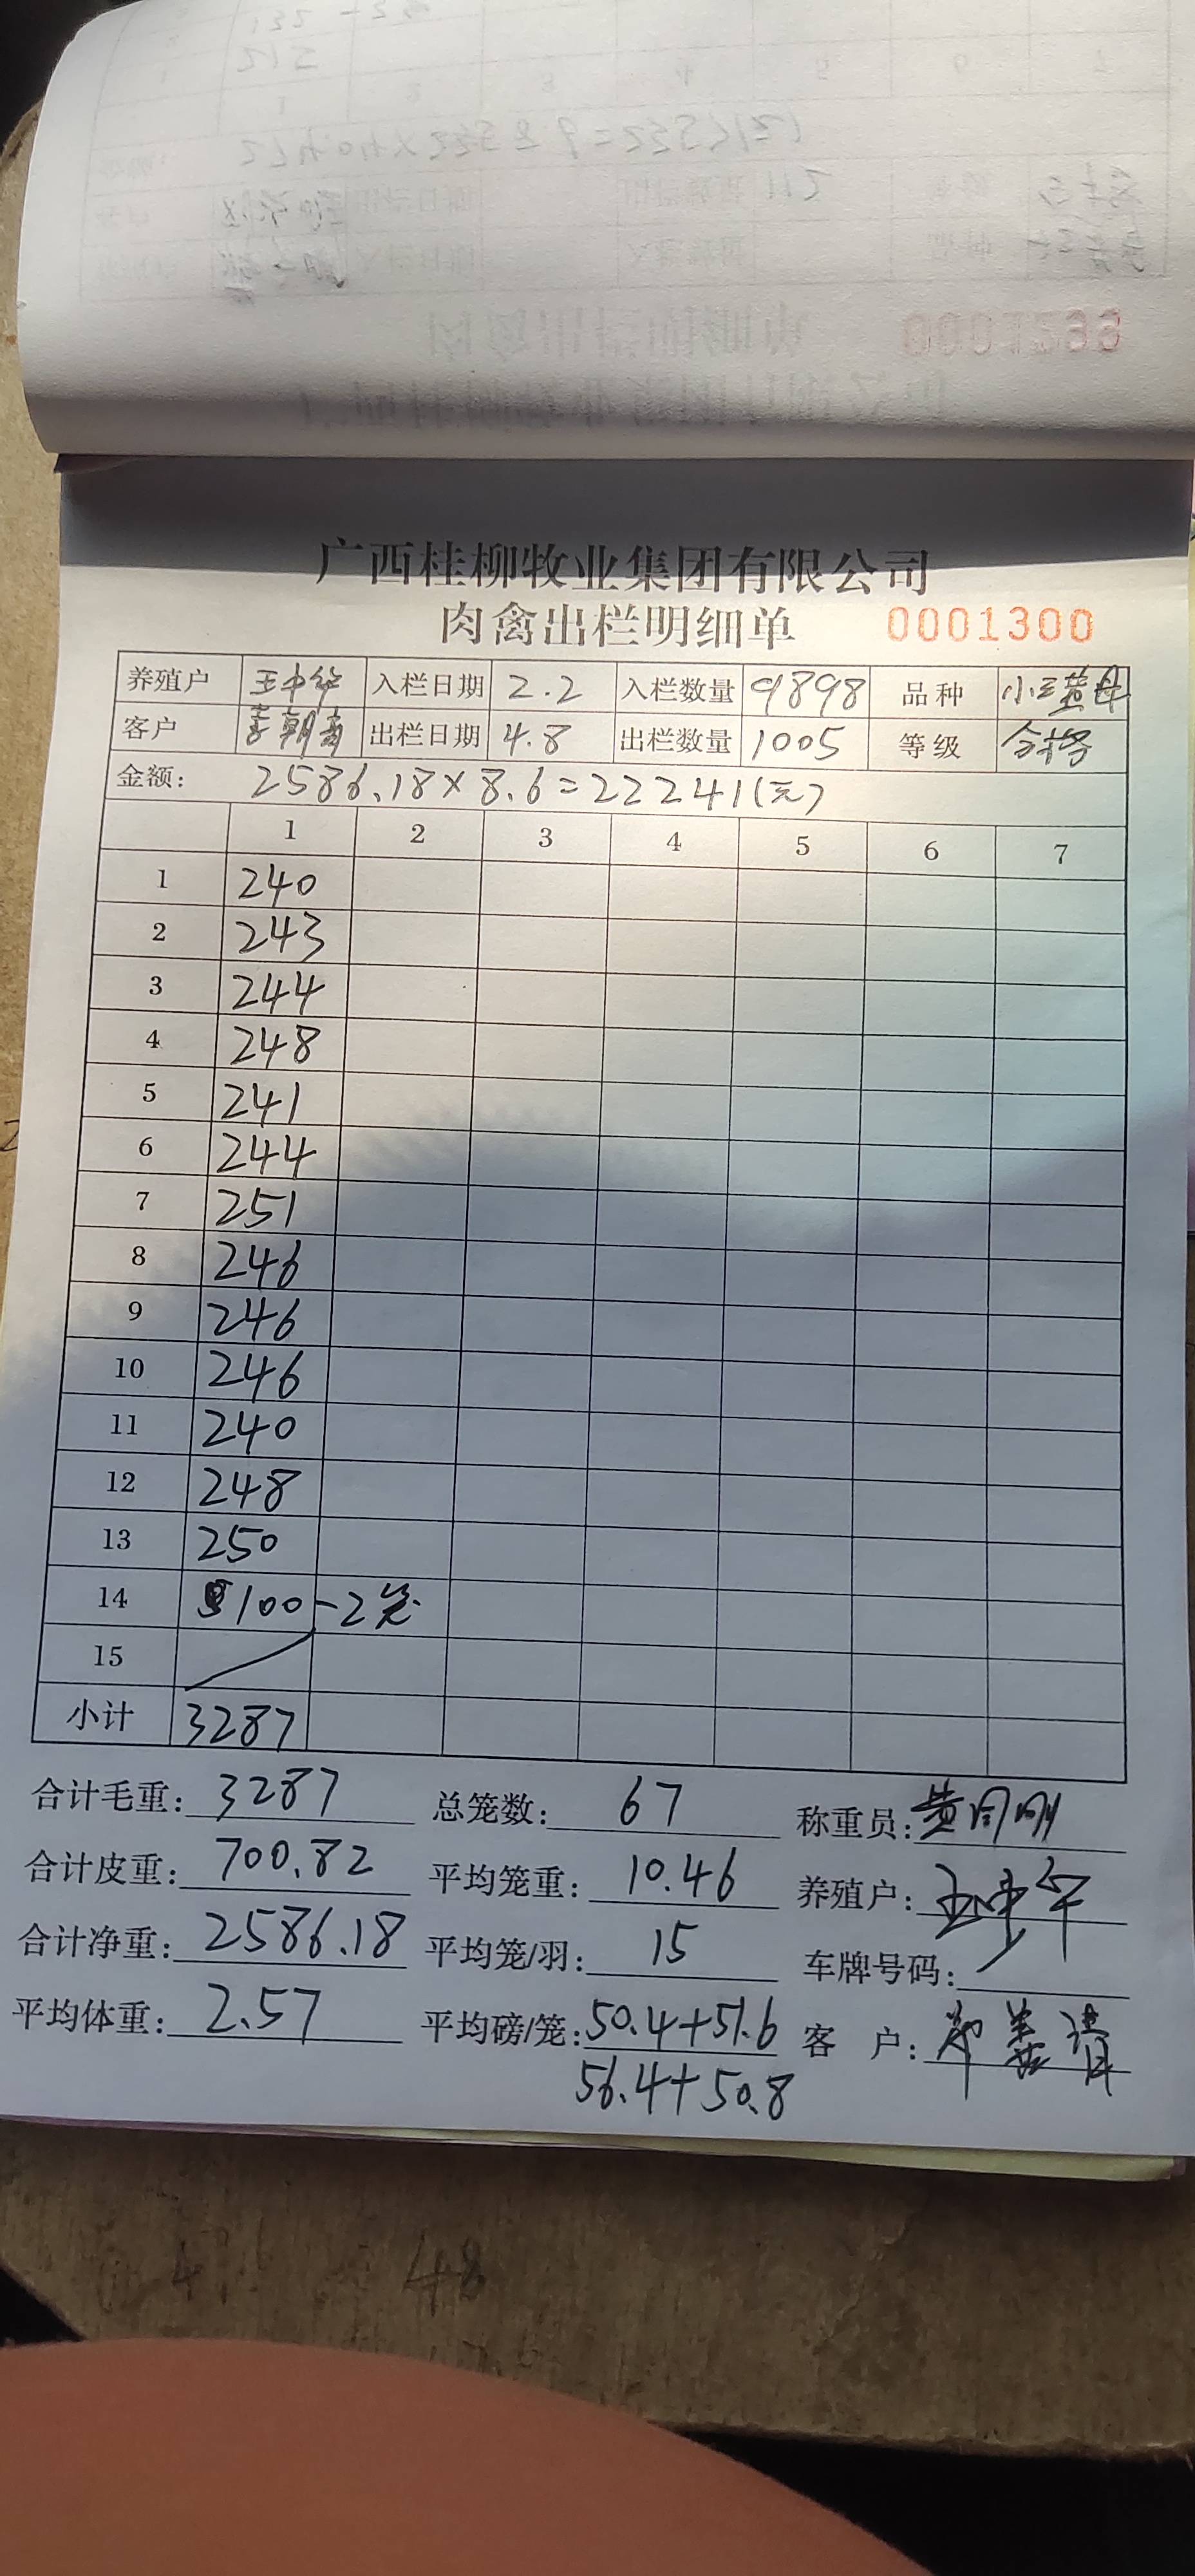 广西桂柳牧业集团有限公司
肉禽出栏明细单 0001300
养殖户 王中华 入栏日期 2.2 入栏数量 9898 品种 小三黄母
客户 出栏日期 4.8 出栏数量 1005 等级 合格
金额: 2586.18×8.6=22241(元)
1 2 3 4 5 6 7
1 240
2 243
3 244
4 248
5 241
6 244
7 251
8 246
9 246
10 246
11 240
12 248
13 250
14 100-2笼
15
小计 3287
合计毛重: 3287 总笼数: 67 称重员:
合计皮重: 700.82 平均笼重: 10.46 养殖户:
合计净重: 2586.18 平均笼/羽: 15 车牌号码:
平均体重: 2.57 平均磅/笼: 50.4+51.6 客 户:
56.4+50.8
48